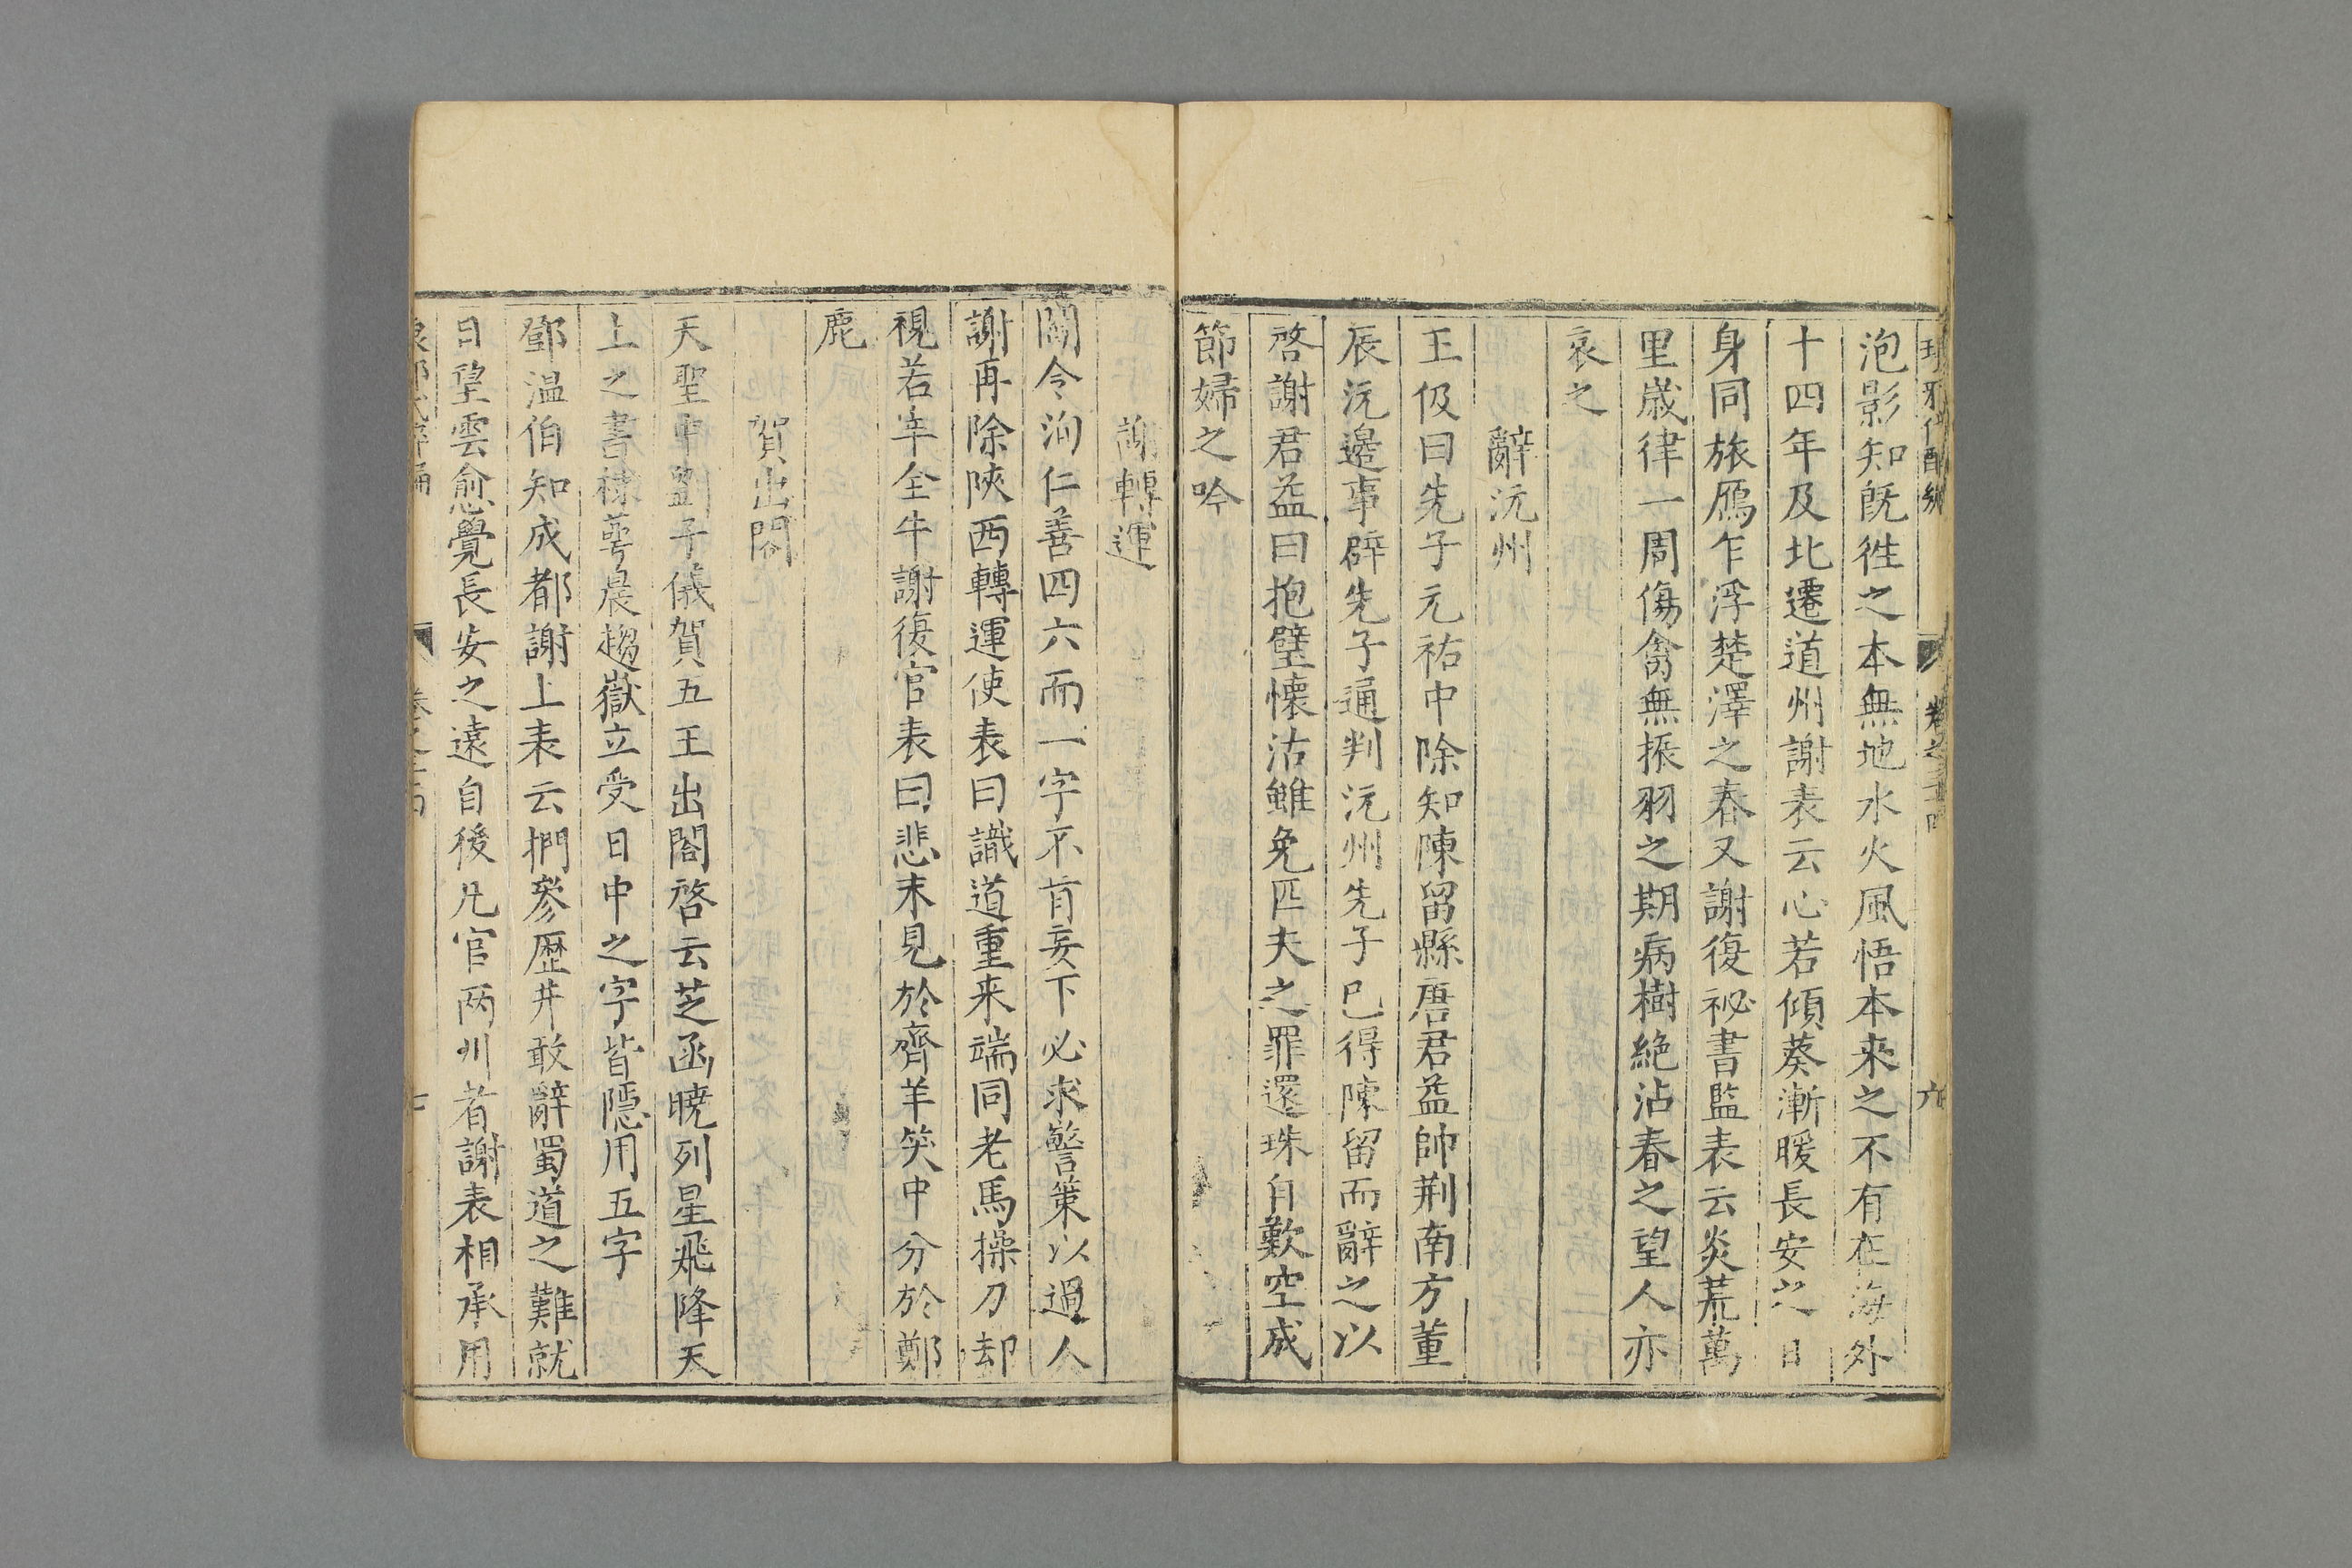 泡影知既徃之本無地水火風悟本来之不有在海外
十四年及北遷道州謝表云心若傾葵漸暖長安之日
身同旅鴈乍浮楚澤之春又謝復祕書監表云炎荒萬
里歲律一周傷禽無振羽之期病樹絶沾春之望人亦
哀之
辭沅州
王伋曰先子元祐中除知陳留縣唐君益帥荆南方董
辰沅邉事辟先子通判沅州先子已得陳留而辭之以
啓謝君益曰抱璧懐沽雖免匹夫之罪還珠自歎空成
節婦之吟
謝轉運
閻令洵仁善四六而一字不肯妄下必求警策以過人
謝再除陜西轉運使表曰識道重来端同老馬操刀却
視若牽全牛謝復官表曰悲未見於齊羊笑中分於鄭
鹿
賀出閤
天聖中劉子儀賀五王出閤啓云芝函曉列星飛降天
上之書棣萼晨趨嶽立受日中之字皆隱用五字
鄧温伯知成都謝上表云捫參歷井敢辭蜀道之難就
日望雲愈覺長安之遠自後凢官两川者謝表相承用